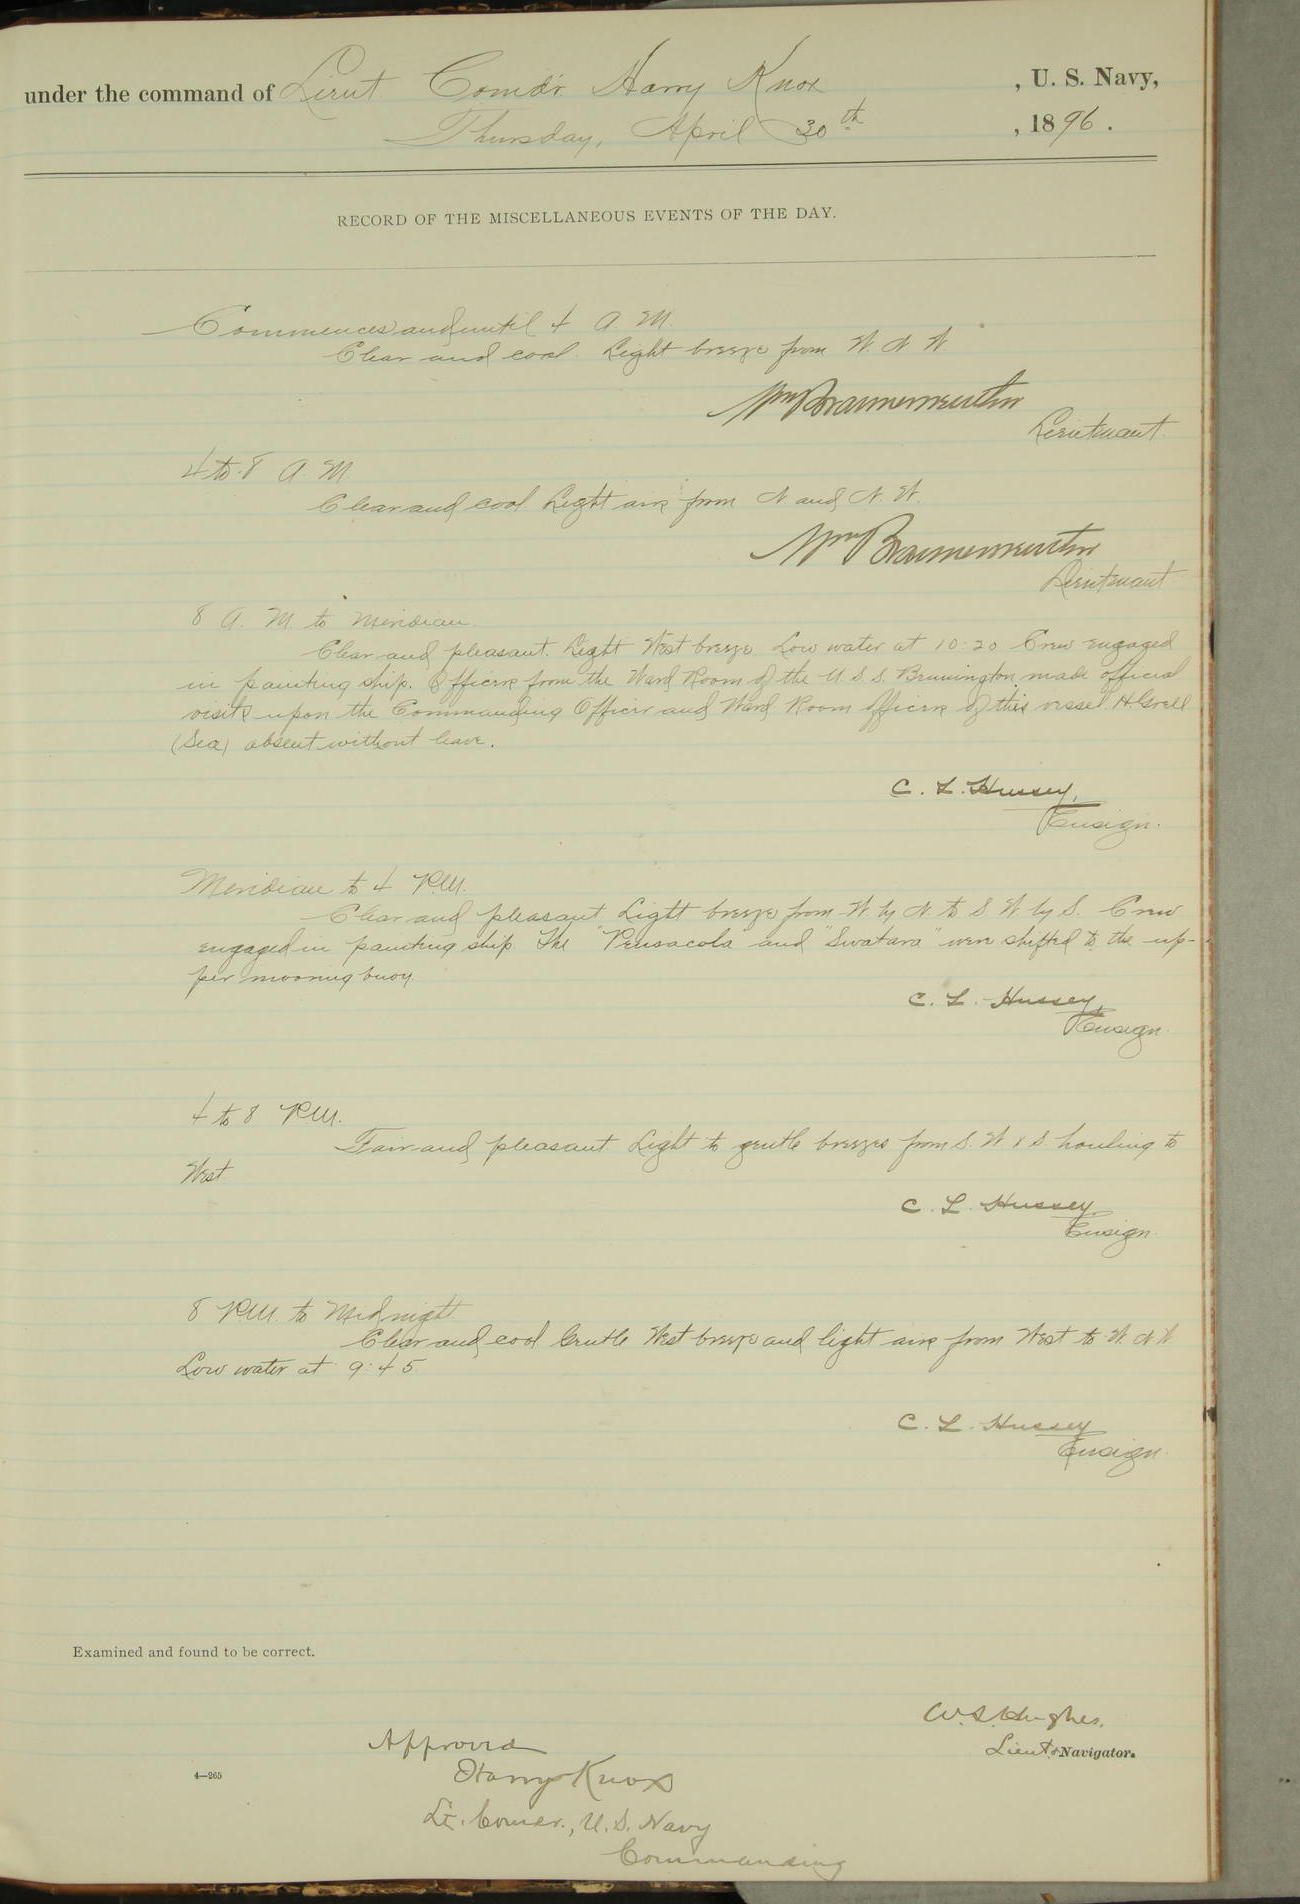 under the command of Lieut Comd'r Harry Knox, U. S. Navy,
Thursday, April 30th, 1896.
RECORD OF THE MISCELLANEOUS EVENTS OF THE DAY.
Commences and until 4 A. M.
Clear and cool. Light breeze from W. N W.
Wm Braunersreuther
Lieutenant.
4 to 8 A. M.
Clear and cool Light airs from N and N. W.
Wm Braunersreuther
Lieutenant
8 A. M. to Meridian.
Clear and pleasant. Light West breeze. Low water at 10:20 Crew engaged
in painting ship. Officers from the Ward Room of the U. S. S. Bennington made official
visits upon the Commanding Officer and Ward Room officers of this vessel. H
(Sea) absent without leave.
C. L. Hussey,
Ensign.
Meridian to 4 P.M.
Clear and pleasant. Light breeze from W. by N. to S W. by S. Crew
engaged in painting ship. The "Pensacola" and "Swatara" were shifted to the up-
per mooring buoy.
C. L. Hussey,
Ensign.
4 to 8 P.M.
Fair and pleasant Light to gentle breezes from S. W & S. hauling to
West
C. L. Hussey.
Ensign.
8 P.M. to Midnight.
Clear and cool Gentle West breeze and light airs from West to W N W
Low water at 9:45
C. L. Hussey
Ensign.
Examined and found to be correct.
W. S. Hughes,
Lieut & Navigator.
Approved
Harry Knox
Lt. Comdr., U. S. Navy
Commanding
4—265